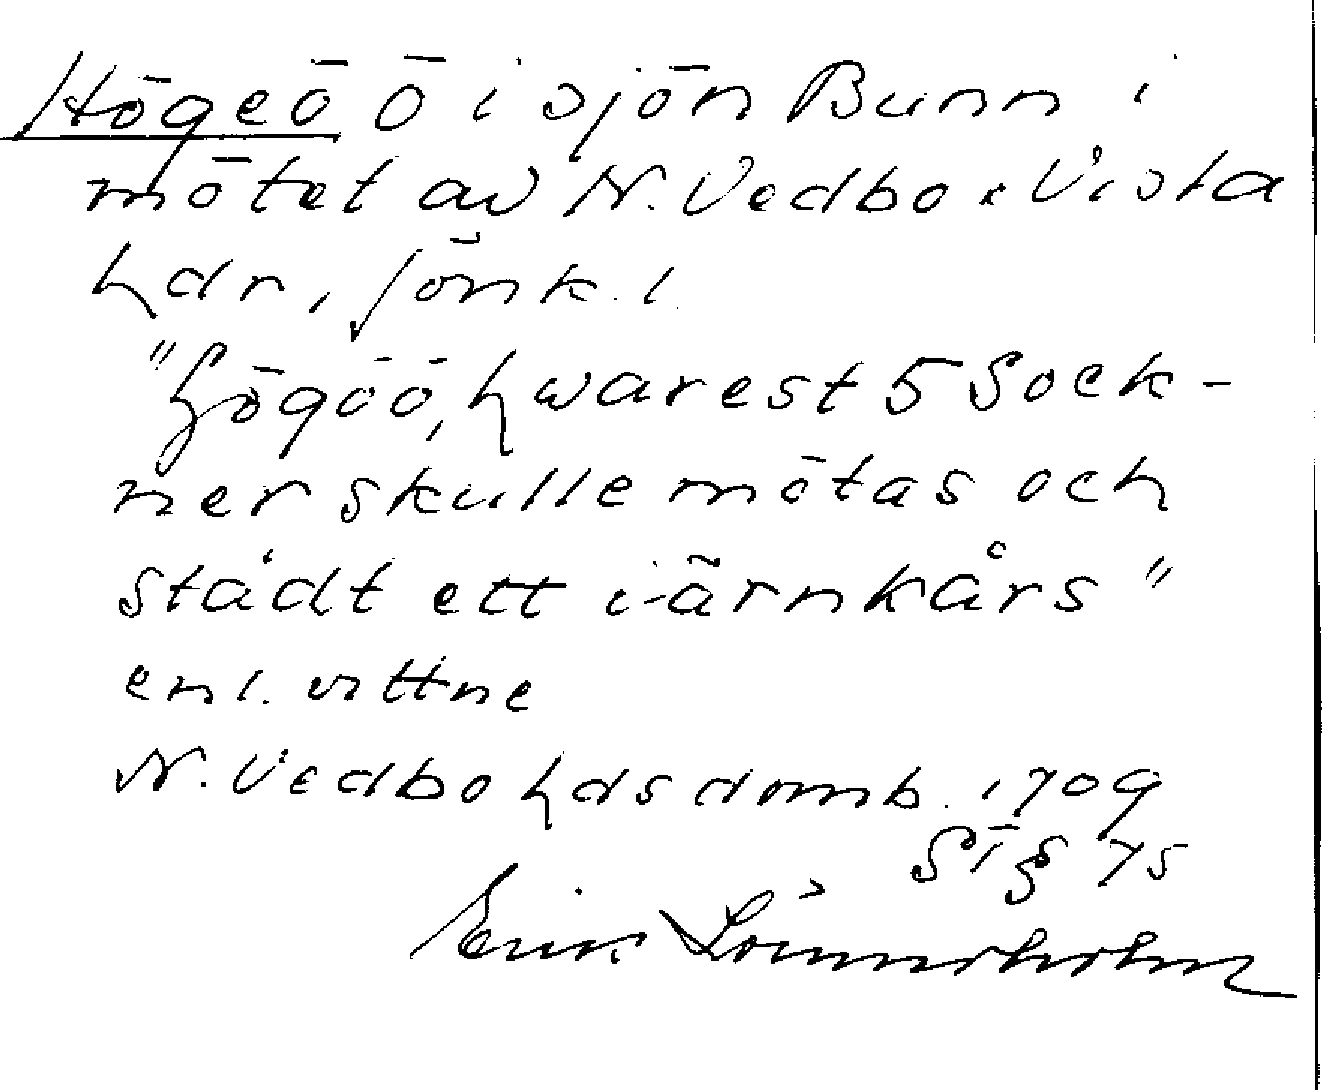 Högeö ö i sjön Bunn i
mötet av N. Vedbo o Vista
hdr, Jönk. l.
"högöö, hwarest 5 Sock-
ner skulle mötas och
stådt ett iärnkårs"
enl. vittne
N. Vedbo hds domb. 1709
ST § 75
Erik Lönnerholm